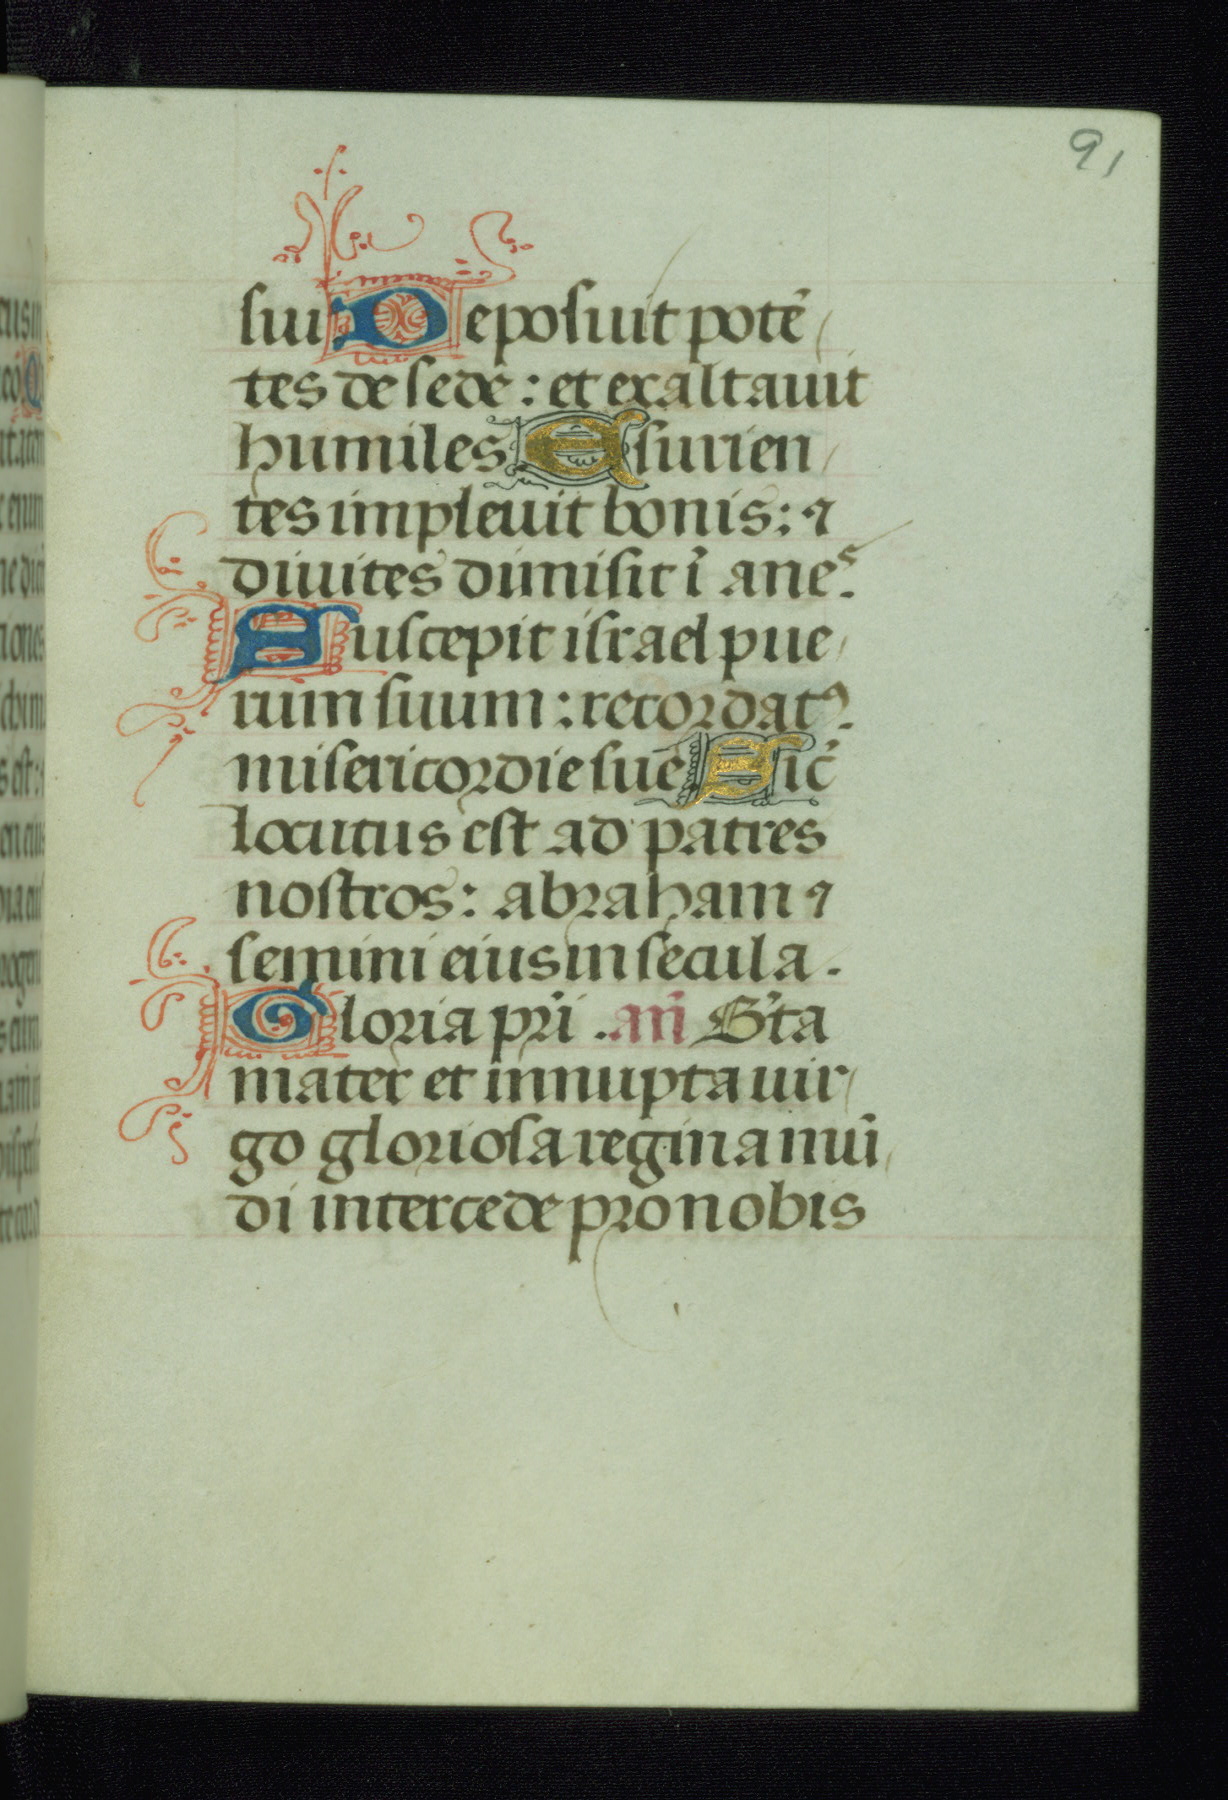 91
sui Deposuit potē
tes de sede : et exaltauit
humiles Esurien
tes impleuit bonis : ⁊
diuites dimisit ī aneˢ.
Suscepit israel pue
rum suum : recordatꝰ.
misericordie sue Sic̄
locutus est ad patres
nostros : abraham ⁊
semini eius in secula .
Gloria pr̄i . an̄ S̄ta
mater et innupta uir
go gloriosa regina mū
di intercede pro nobis